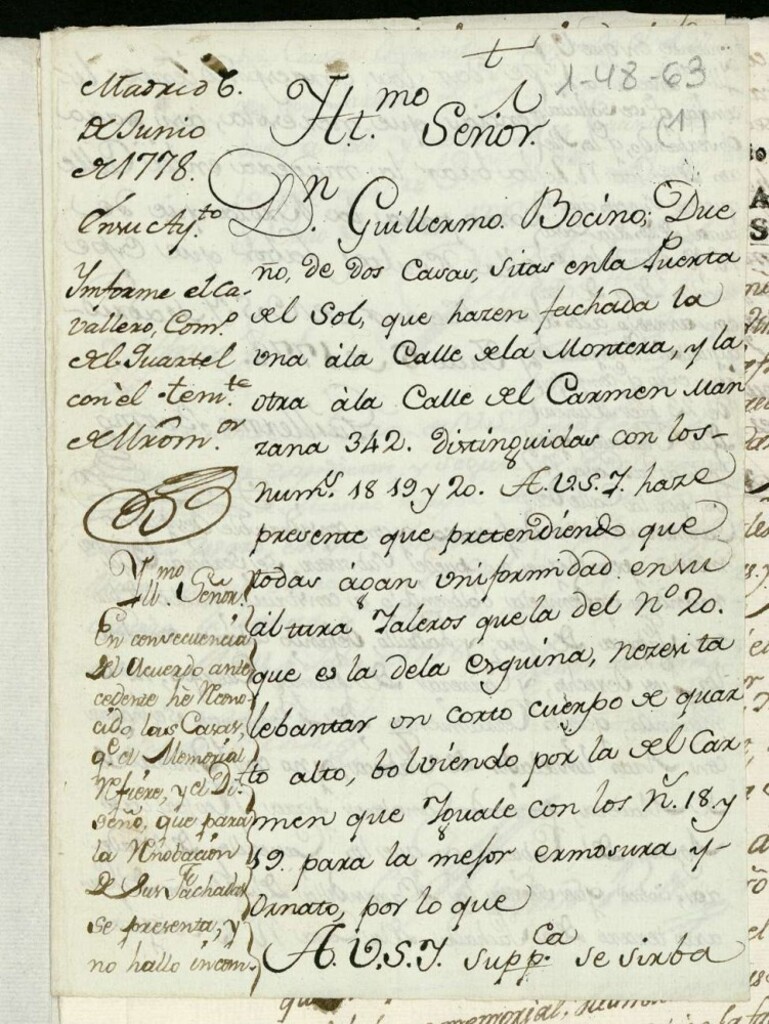 1-48-63
(1)
Madrid 6.
de Junio
de 1778.
En su Ay.to
Informe el Ca-
vallero, Com.o
del Quartel
con el tem.te
de Mrõm.or
Yll.mo Señor.
En consecuencia
del Acuerdo ante
cedente hè Recono
cido, las Casas,
q.e el Memorial
Refiere, y el Di-
seño, que para
la Renobacion
de Sus Fachadas
se presenta, y
no hallo incom.
Ht.mo Señor.
D.n Guillermo. Bocino; Due
ño, de dos Casas, sitas en la Puerta
del Sol, que hazen fachada la
una àla Calle dela Montera, y la
otra àla Calle del Carmen Man
zana 342. distinguidas con los-
num.s 18 19 y 20. A. V.S.I. haze
presente que pretendiendo que
todas àgan uniformidad en su
altura Yaleros que la del N.o 20.
que es la dela esquina, nezesita
lebantar un corto cuerpo de quar
to alto, bolviendo por la del Car-
men que Yguale con los N.s 18 y
19. para la mejor ermosura y-
Ornato, por lo que
A. V.S.I. supp.ca se sirba